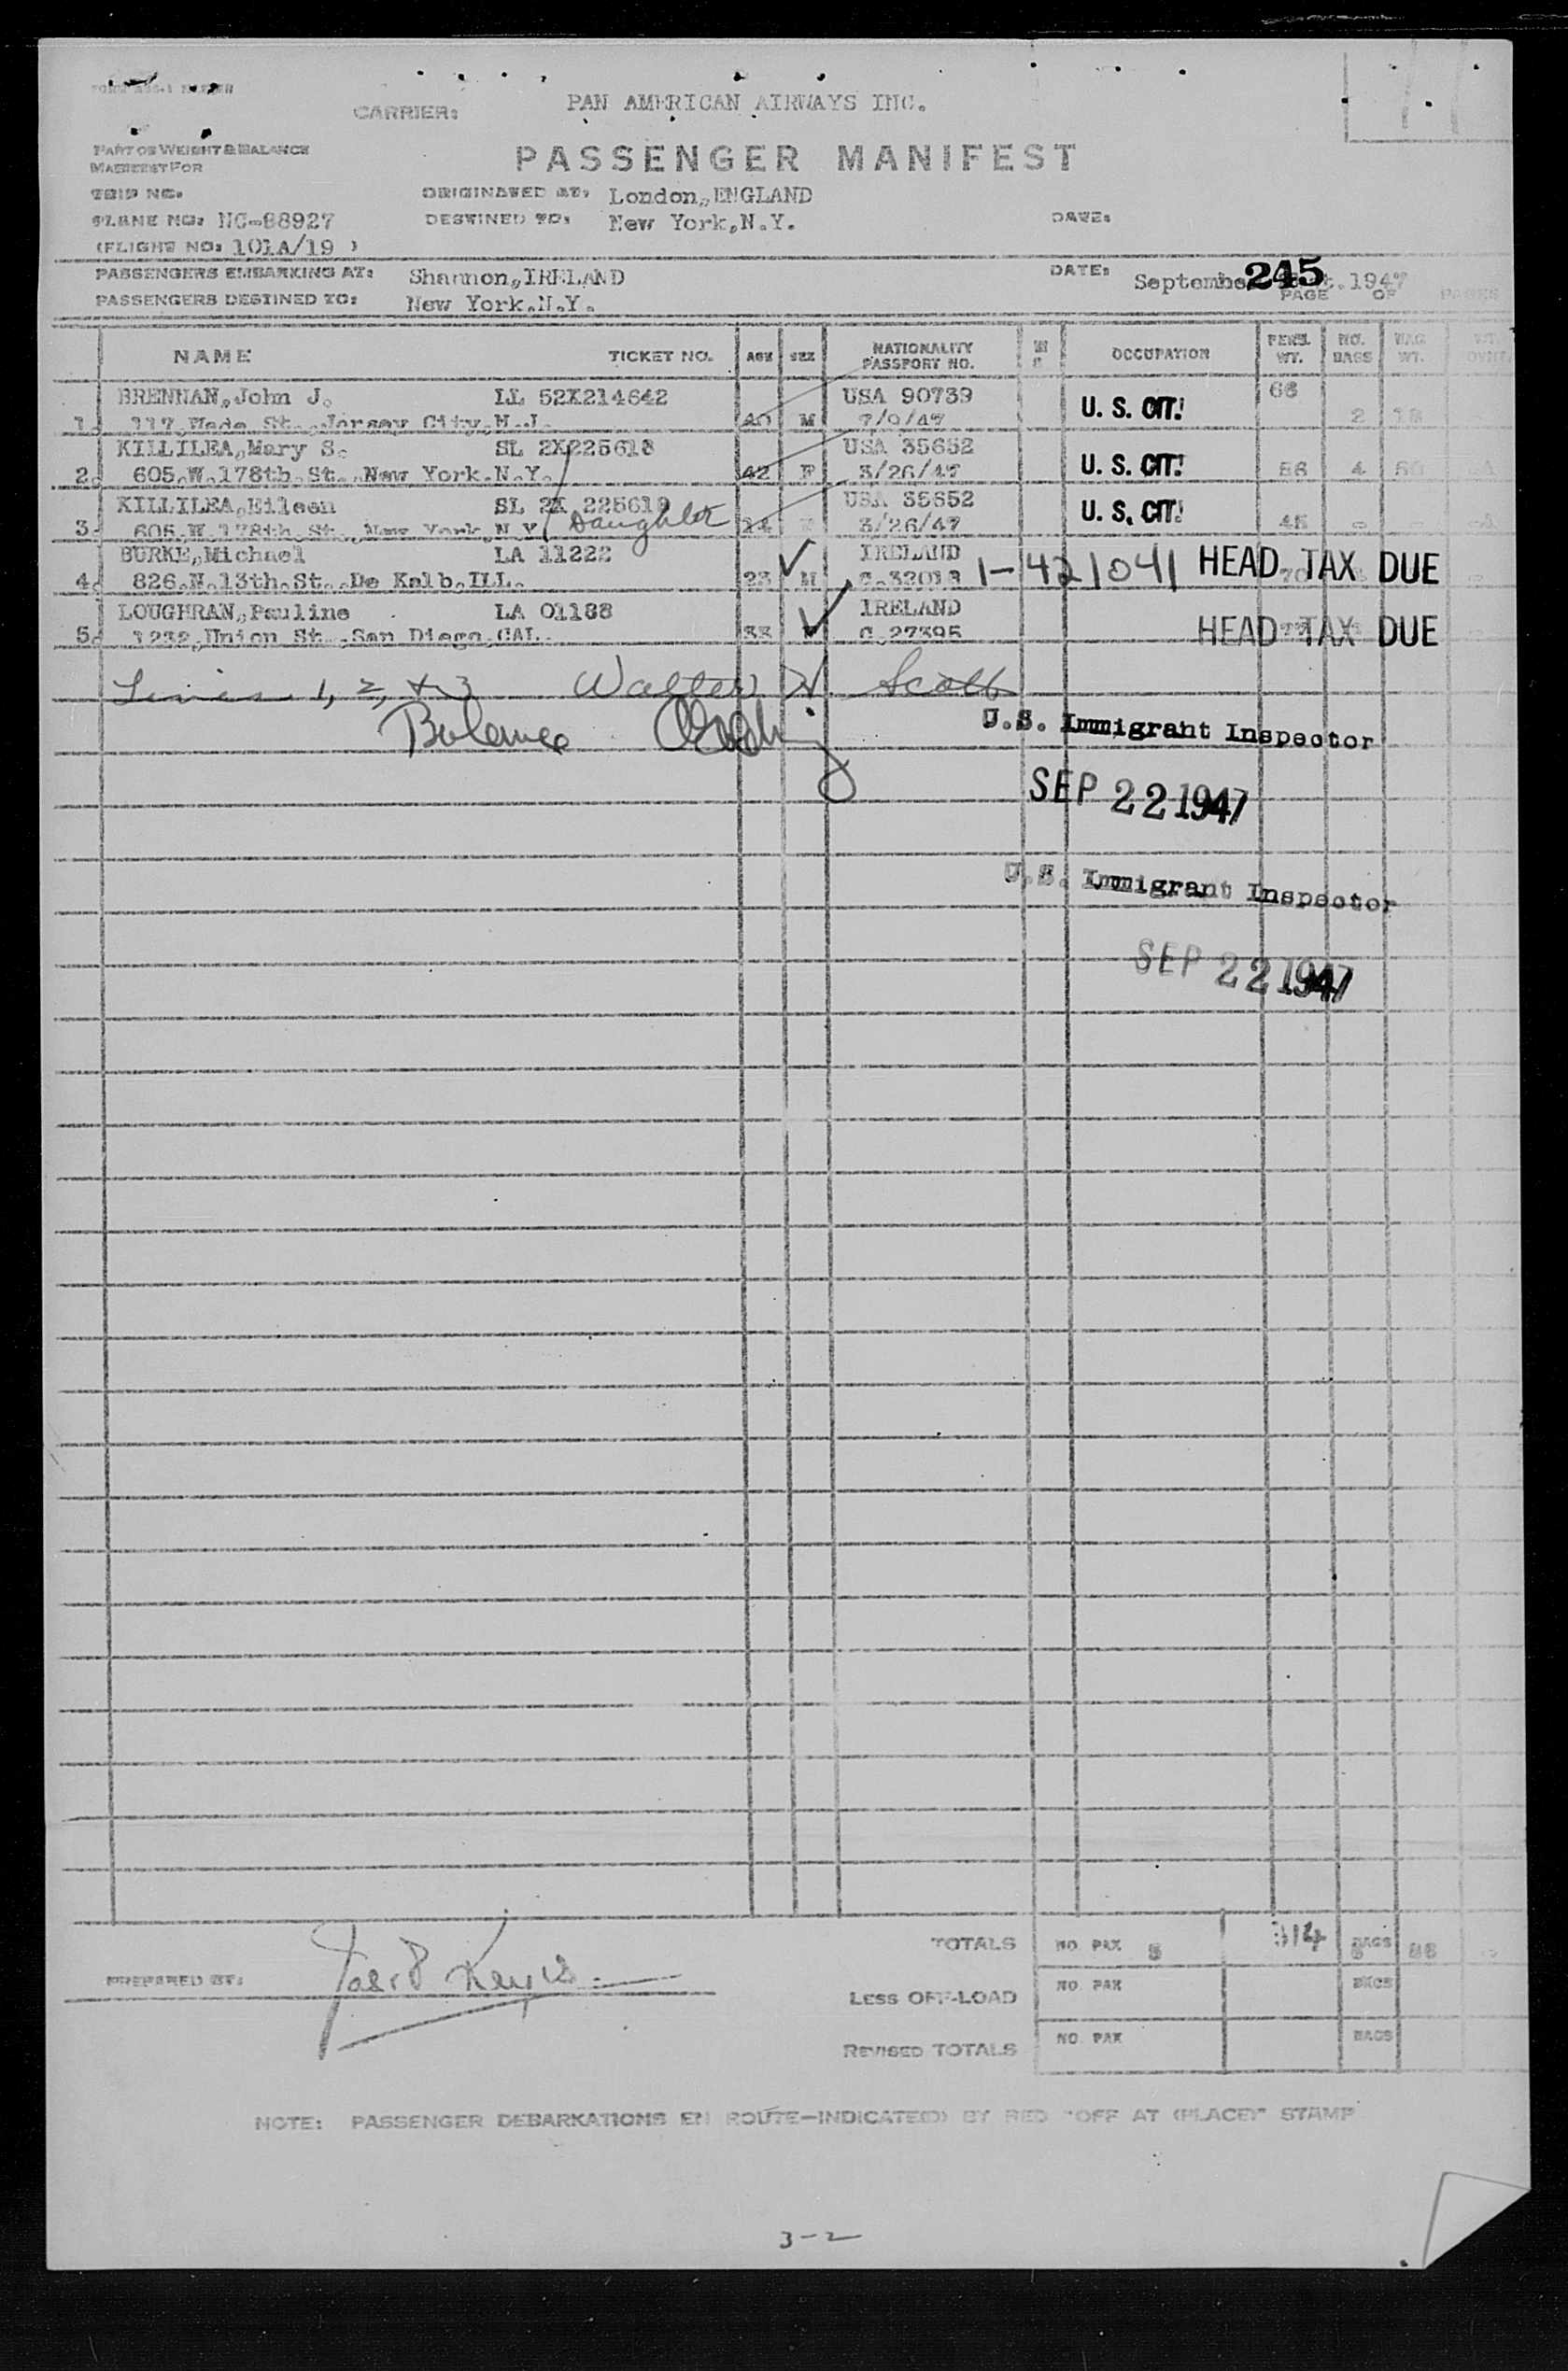 CARRIER: PAN AMERICAN AIRWAYS INC.
PART OF WEIGHT & BALANCE
MANIFEST FOR
PASSENGER MANIFEST
TRIP NO.
ORIGINATED AT: London, ENGLAND
PLANE NO: NC-88927
DESTINED TO: New York, N.Y.
DATE:
(FLIGHT NO: 101A/19 )
PASSENGERS EMBARKING AT: Shannon, IRELAND
DATE: September 1947
245
PASSENGERS DESTINED TO: New York, N.Y.
PAGE OF PAGES
NAME TICKET NO. AGE SEX NATIONALITY PASSPORT NO. OCCUPATION PERS. WT. NO. BAGS BAG WT.
BRENNAN, John J. LL 52X214642 USA 90739 U. S. CIT. 66
1. 117, Wade St., Jersey City, N.J. 40 M 7/9/47 2 18
KILLILEA, Mary S. SL 2X225618 USA 35652 U. S. CIT.
2. 605, W. 178th. St., New York. N.Y. 42 F 3/26/47 56 4 50
KILLILEA, Eileen SL 2X 225619 USA 35652 U. S. CIT.
3. 605, W. 178th. St., New York, N.Y. Daughter 14 3/26/47 45
BURKE, Michael LA 11222 IRELAND 1-421041 HEAD TAX DUE
4. 826, N. 13th. St., De Kalb, ILL. 23 M C.32013 70
LOUGHRAN, Pauline LA 01188 IRELAND HEAD TAX DUE
5. 1232, Union St., San Diego, CAL. 33 C.27395
Lines 1, 2, + 3 Walter H Scott
Balance
U.S. Immigrant Inspector
SEP 22 1947
U.S. Immigrant Inspector
SEP 22 1947
TOTALS NO. PAX 5 314 BAGS
PREPARED BY:
LESS OFF-LOAD NO. PAX BAGS
REVISED TOTALS NO. PAX BAGS
NOTE: PASSENGER DEBARKATIONS EN ROUTE—INDICATE(D) BY RED "OFF AT (PLACE)" STAMP
3-2